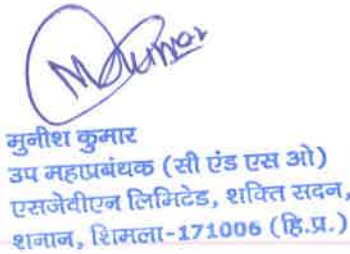 M Kumar
मुनीश कुमार
उप महाप्रबंधक (सी एंड एस ओ)
एसजेवीएन लिमिटेड, शक्ति सदन,
शनान, शिमला-171006 (हि.प्र.)